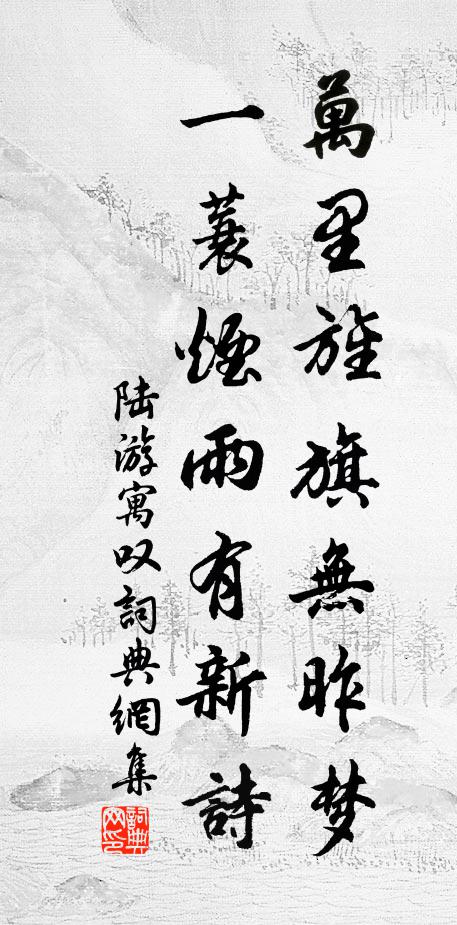 萬里旌旗無昨梦
一蓑煙雨有新詩
陆游寓叹詞典網集
詞典网印